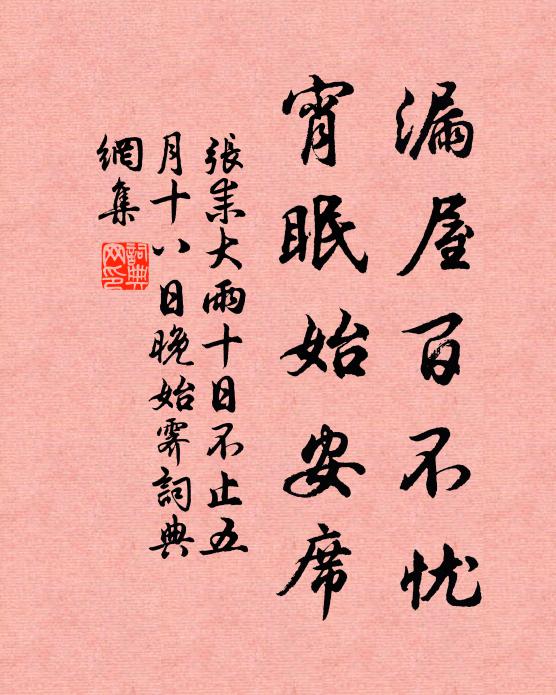 漏屋百不忧
宵眠始安席
張耒大雨十日不止五
月十八日晚始霽詞典
網集
詞典
网印